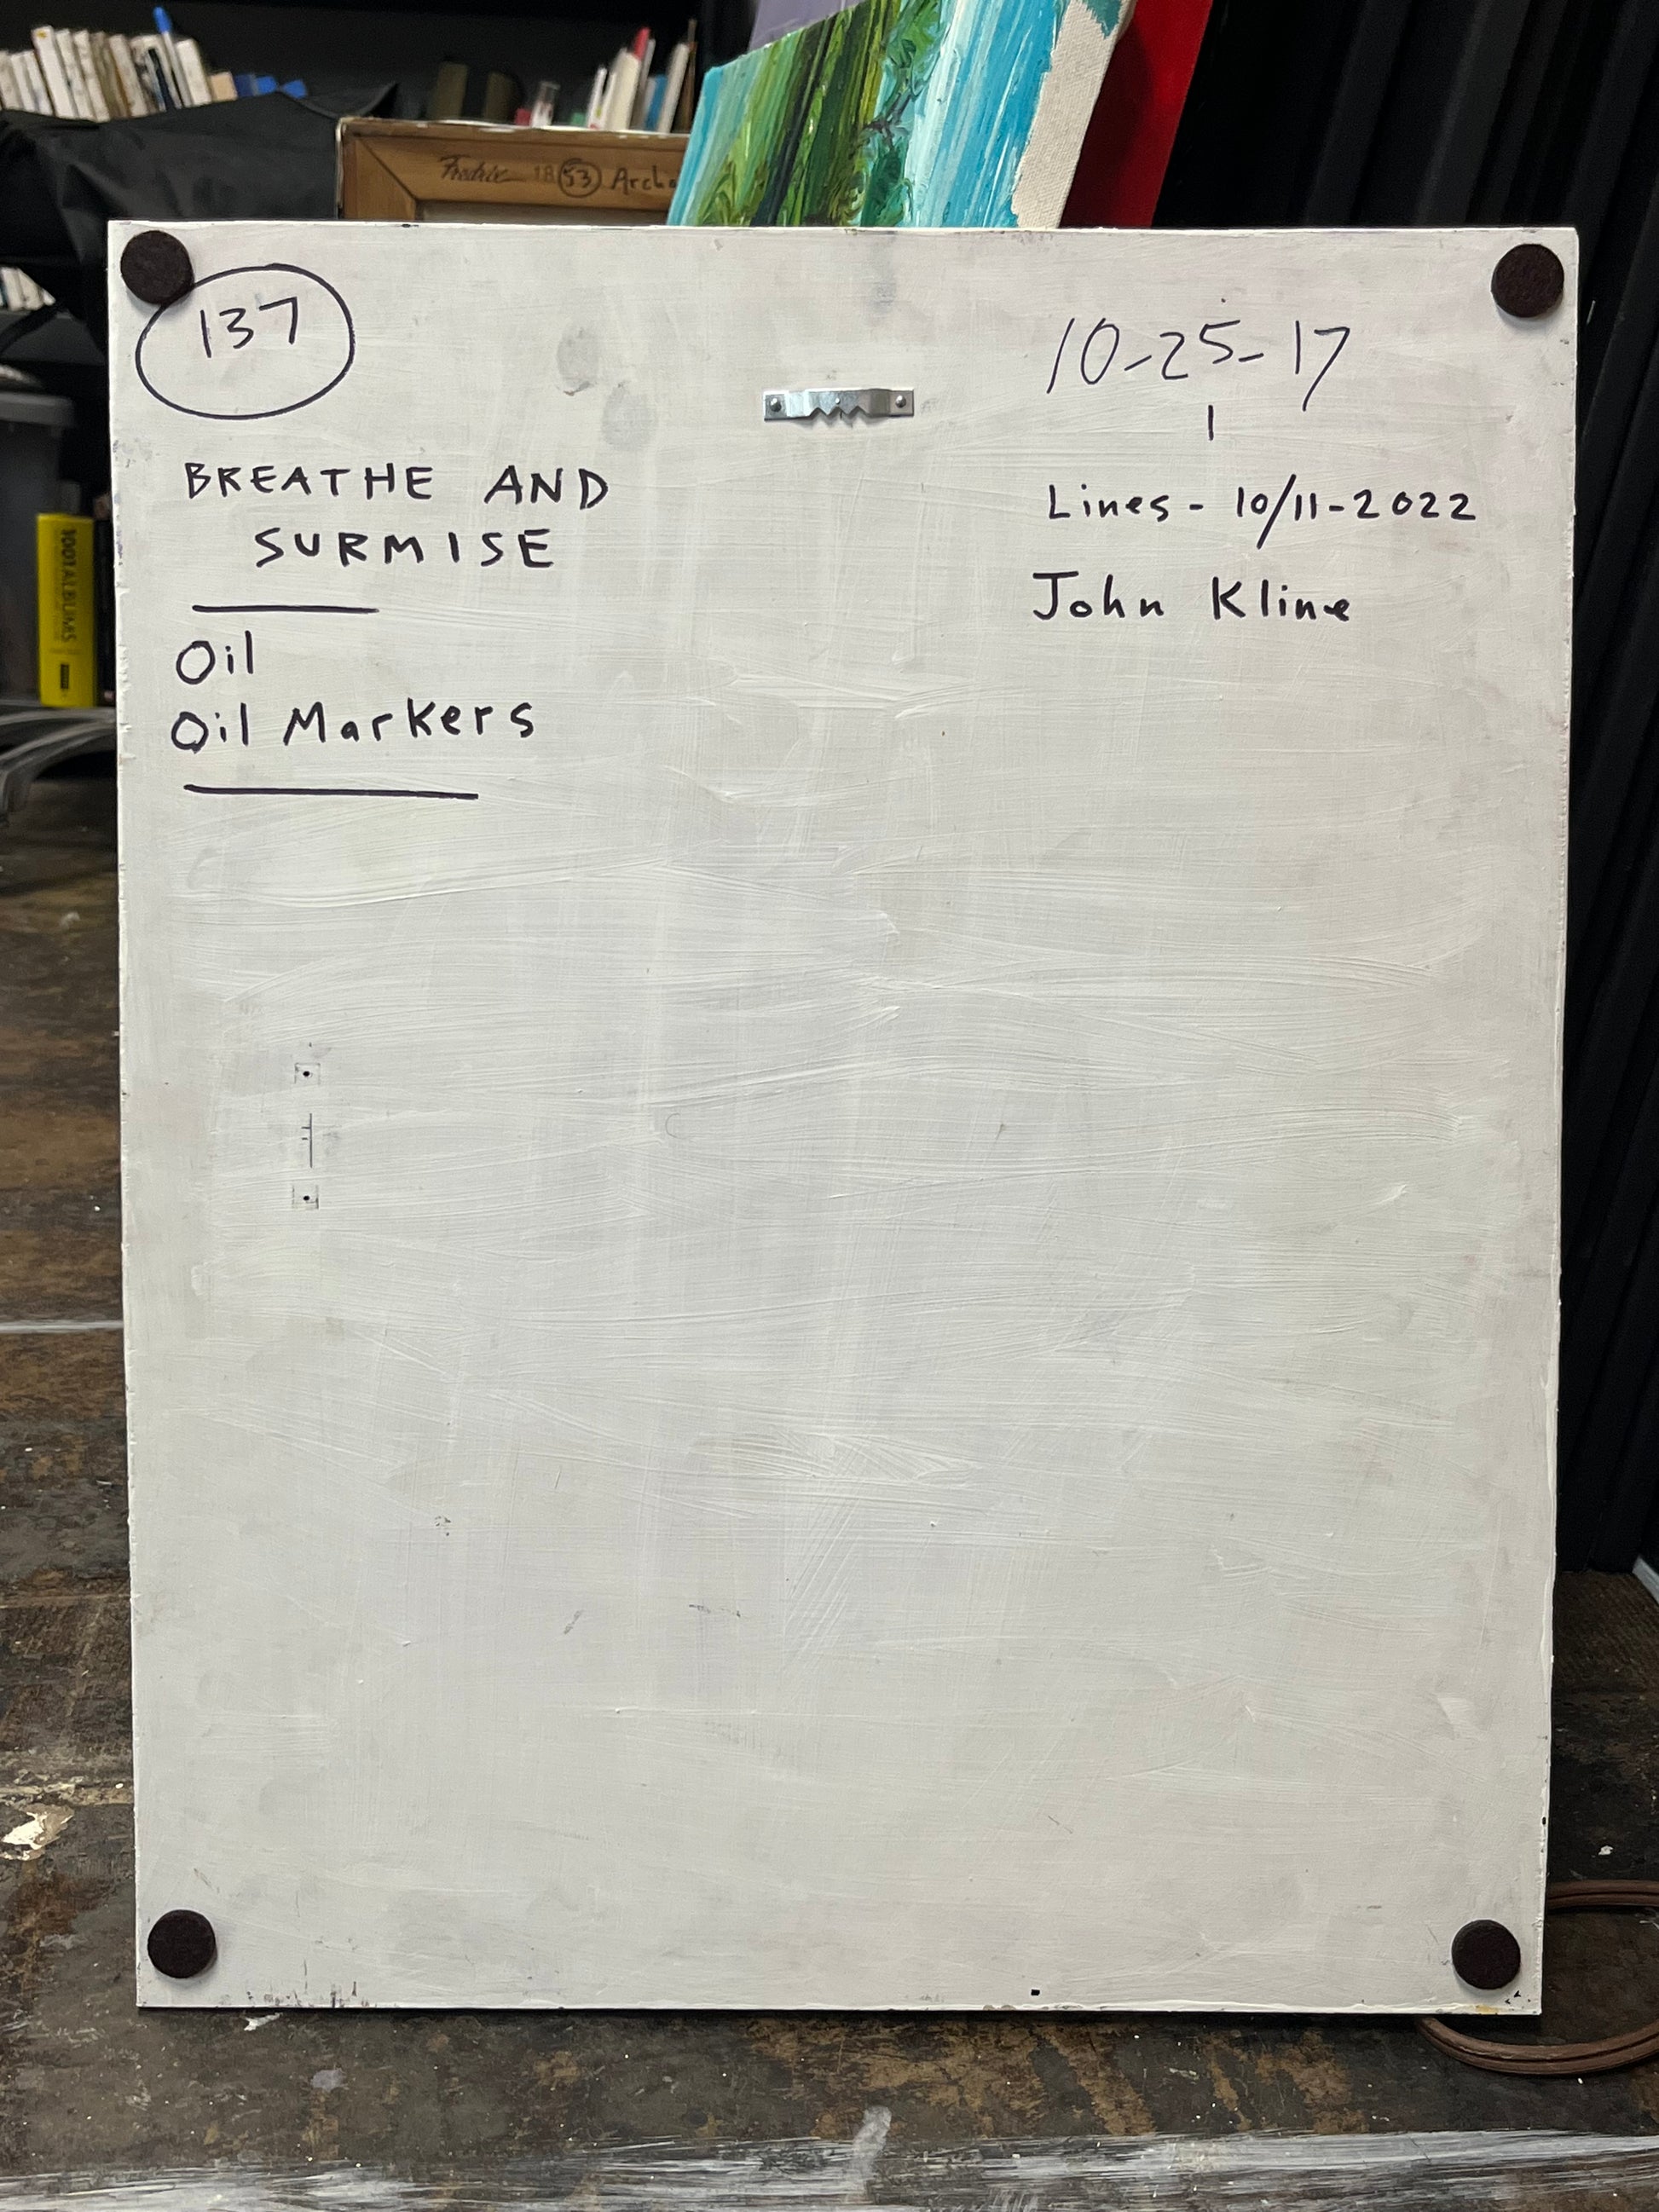 Fredrix 18 53 Archa
137
BREATHE AND
SURMISE
Oil
Oil Markers
10-25-17
Lines - 10/11-2022
John Kline
1001 ALBUMS